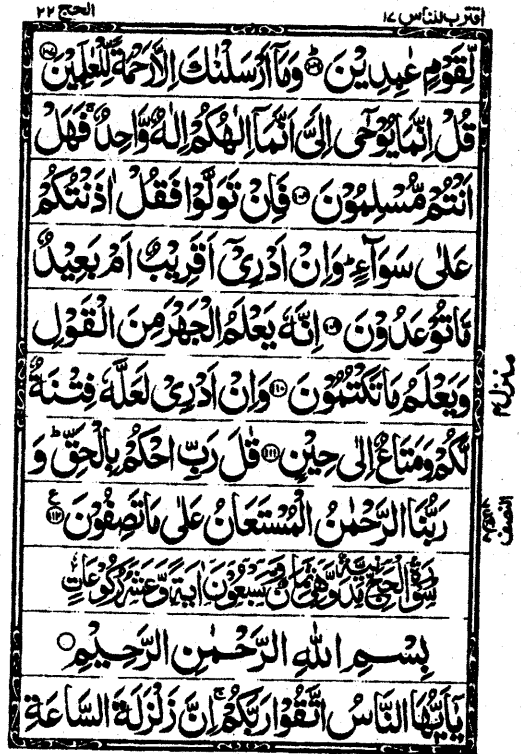 اقترب للناس ١٧
الحج ٢٢
لِّقَوْمٍ عٰبِدِيْنَ ؕ﴿۱۰۶﴾ وَمَاۤ اَرْسَلْنٰكَ اِلَّا رَحْمَةً لِّلْعٰلَمِيْنَ ﴿۱۰۷﴾
قُلْ اِنَّمَا يُوْحٰۤى اِلَىَّ اَنَّمَاۤ اِلٰهُكُمْ اِلٰهٌ وَّاحِدٌ ۚ فَهَلْ
اَنْتُمْ مُّسْلِمُوْنَ ﴿۱۰۸﴾ فَاِنْ تَوَلَّوْا فَقُلْ اٰذَنْتُكُمْ
عَلٰى سَوَآءٍ ؕ وَاِنْ اَدْرِىْۤ اَقَرِيْبٌ اَمْ بَعِيْدٌ
مَّا تُوْعَدُوْنَ ﴿۱۰۹﴾ اِنَّهٗ يَعْلَمُ الْجَهْرَ مِنَ الْقَوْلِ
وَيَعْلَمُ مَا تَكْتُمُوْنَ ﴿۱۱۰﴾ وَاِنْ اَدْرِىْ لَعَلَّهٗ فِتْنَةٌ
لَّكُمْ وَمَتَاعٌ اِلٰى حِيْنٍ ﴿۱۱۱﴾ قٰلَ رَبِّ احْكُمْ بِالْحَقِّ ؕ وَ
رَبُّنَا الرَّحْمٰنُ الْمُسْتَعَانُ عَلٰى مَا تَصِفُوْنَ ﴿۱۱۲﴾ ع
سُوْرَةُ الْحَجِّ مَدَنِيَّةٌ وَّهِىَ ثَمَانٌ وَّسَبْعُوْنَ اٰيَةً وَّعَشْرُ رُكُوْعَاتٍ
بِسْمِ اللّٰهِ الرَّحْمٰنِ الرَّحِيْمِ ○
يٰۤاَيُّهَا النَّاسُ اتَّقُوْا رَبَّكُمْ ۚ اِنَّ زَلْزَلَةَ السَّاعَةِ
منزل ٤
النصف